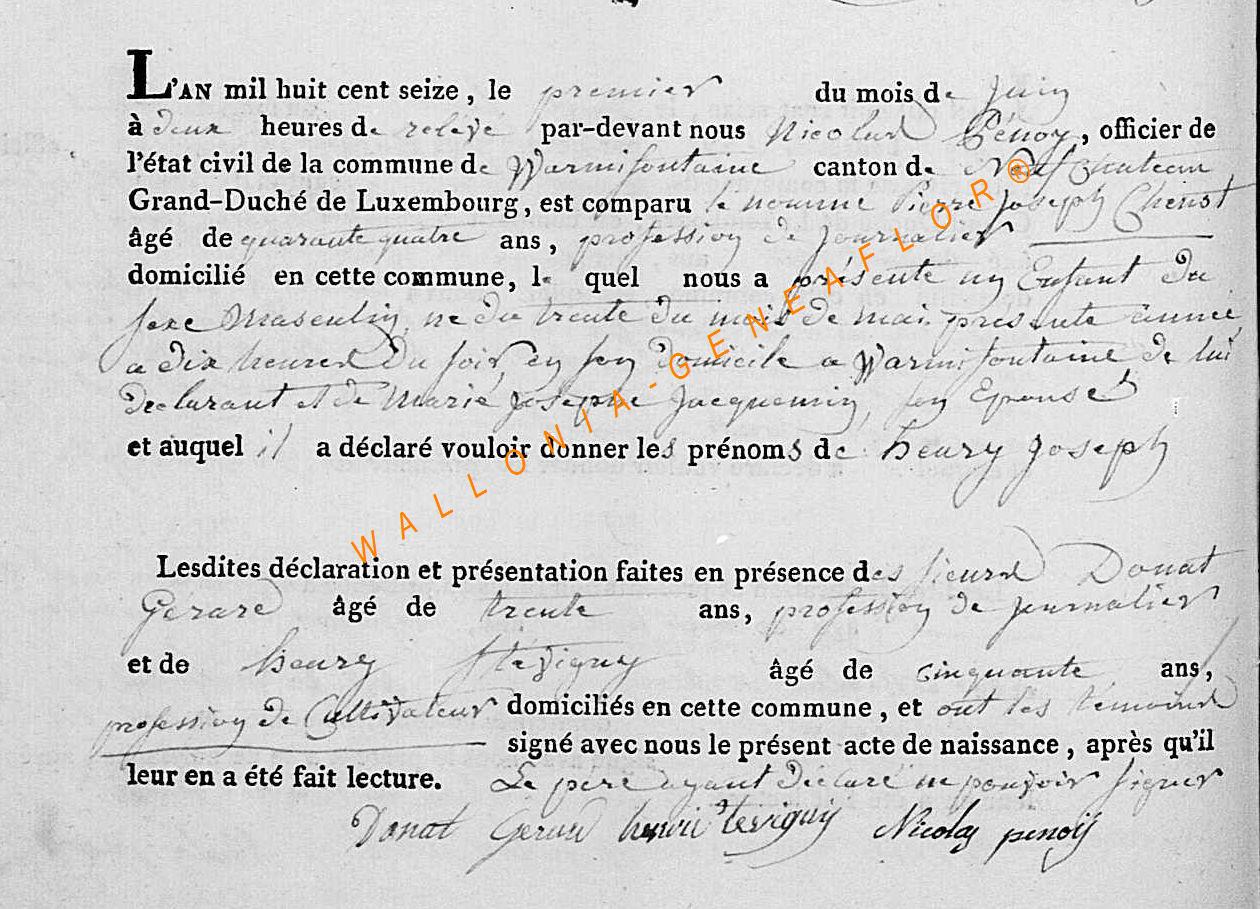 L'AN mil huit cent seize, le premier du mois de Juin
à deux heures de relevé par-devant nous Nicolas Pénoy, officier de
l'état civil de la commune de Warmifontaine canton de Neufchateau
Grand-Duché de Luxembourg, est comparu le nommé Pierre Joseph Chenot
âgé de quarante quatre ans, profession de Journalier
domicilié en cette commune, le quel nous a présenté un Enfant du
sexe Masculin, né du trente du mois de mai, présente année
a dix heures du soir, en son domicile a Warmifontaine de lui
declarant et de Marie Josephe Jacquemin, son Epouse
et auquel il a déclaré vouloir donner les prénoms de henry Joseph
Lesdites déclaration et présentation faites en présence des sieurs Donat
Gérard âgé de trente ans, profession de journalier
et de henry âgé de cinquante ans,
profession de Cultivateur domiciliés en cette commune, et ont les témoins
signé avec nous le présent acte de naissance, après qu'il
leur en a été fait lecture. Le père ayant déclaré ne pouvoir signer
Donat Gerard henri Nicolas penoÿ
WALLONIA-GENEAFLOR®